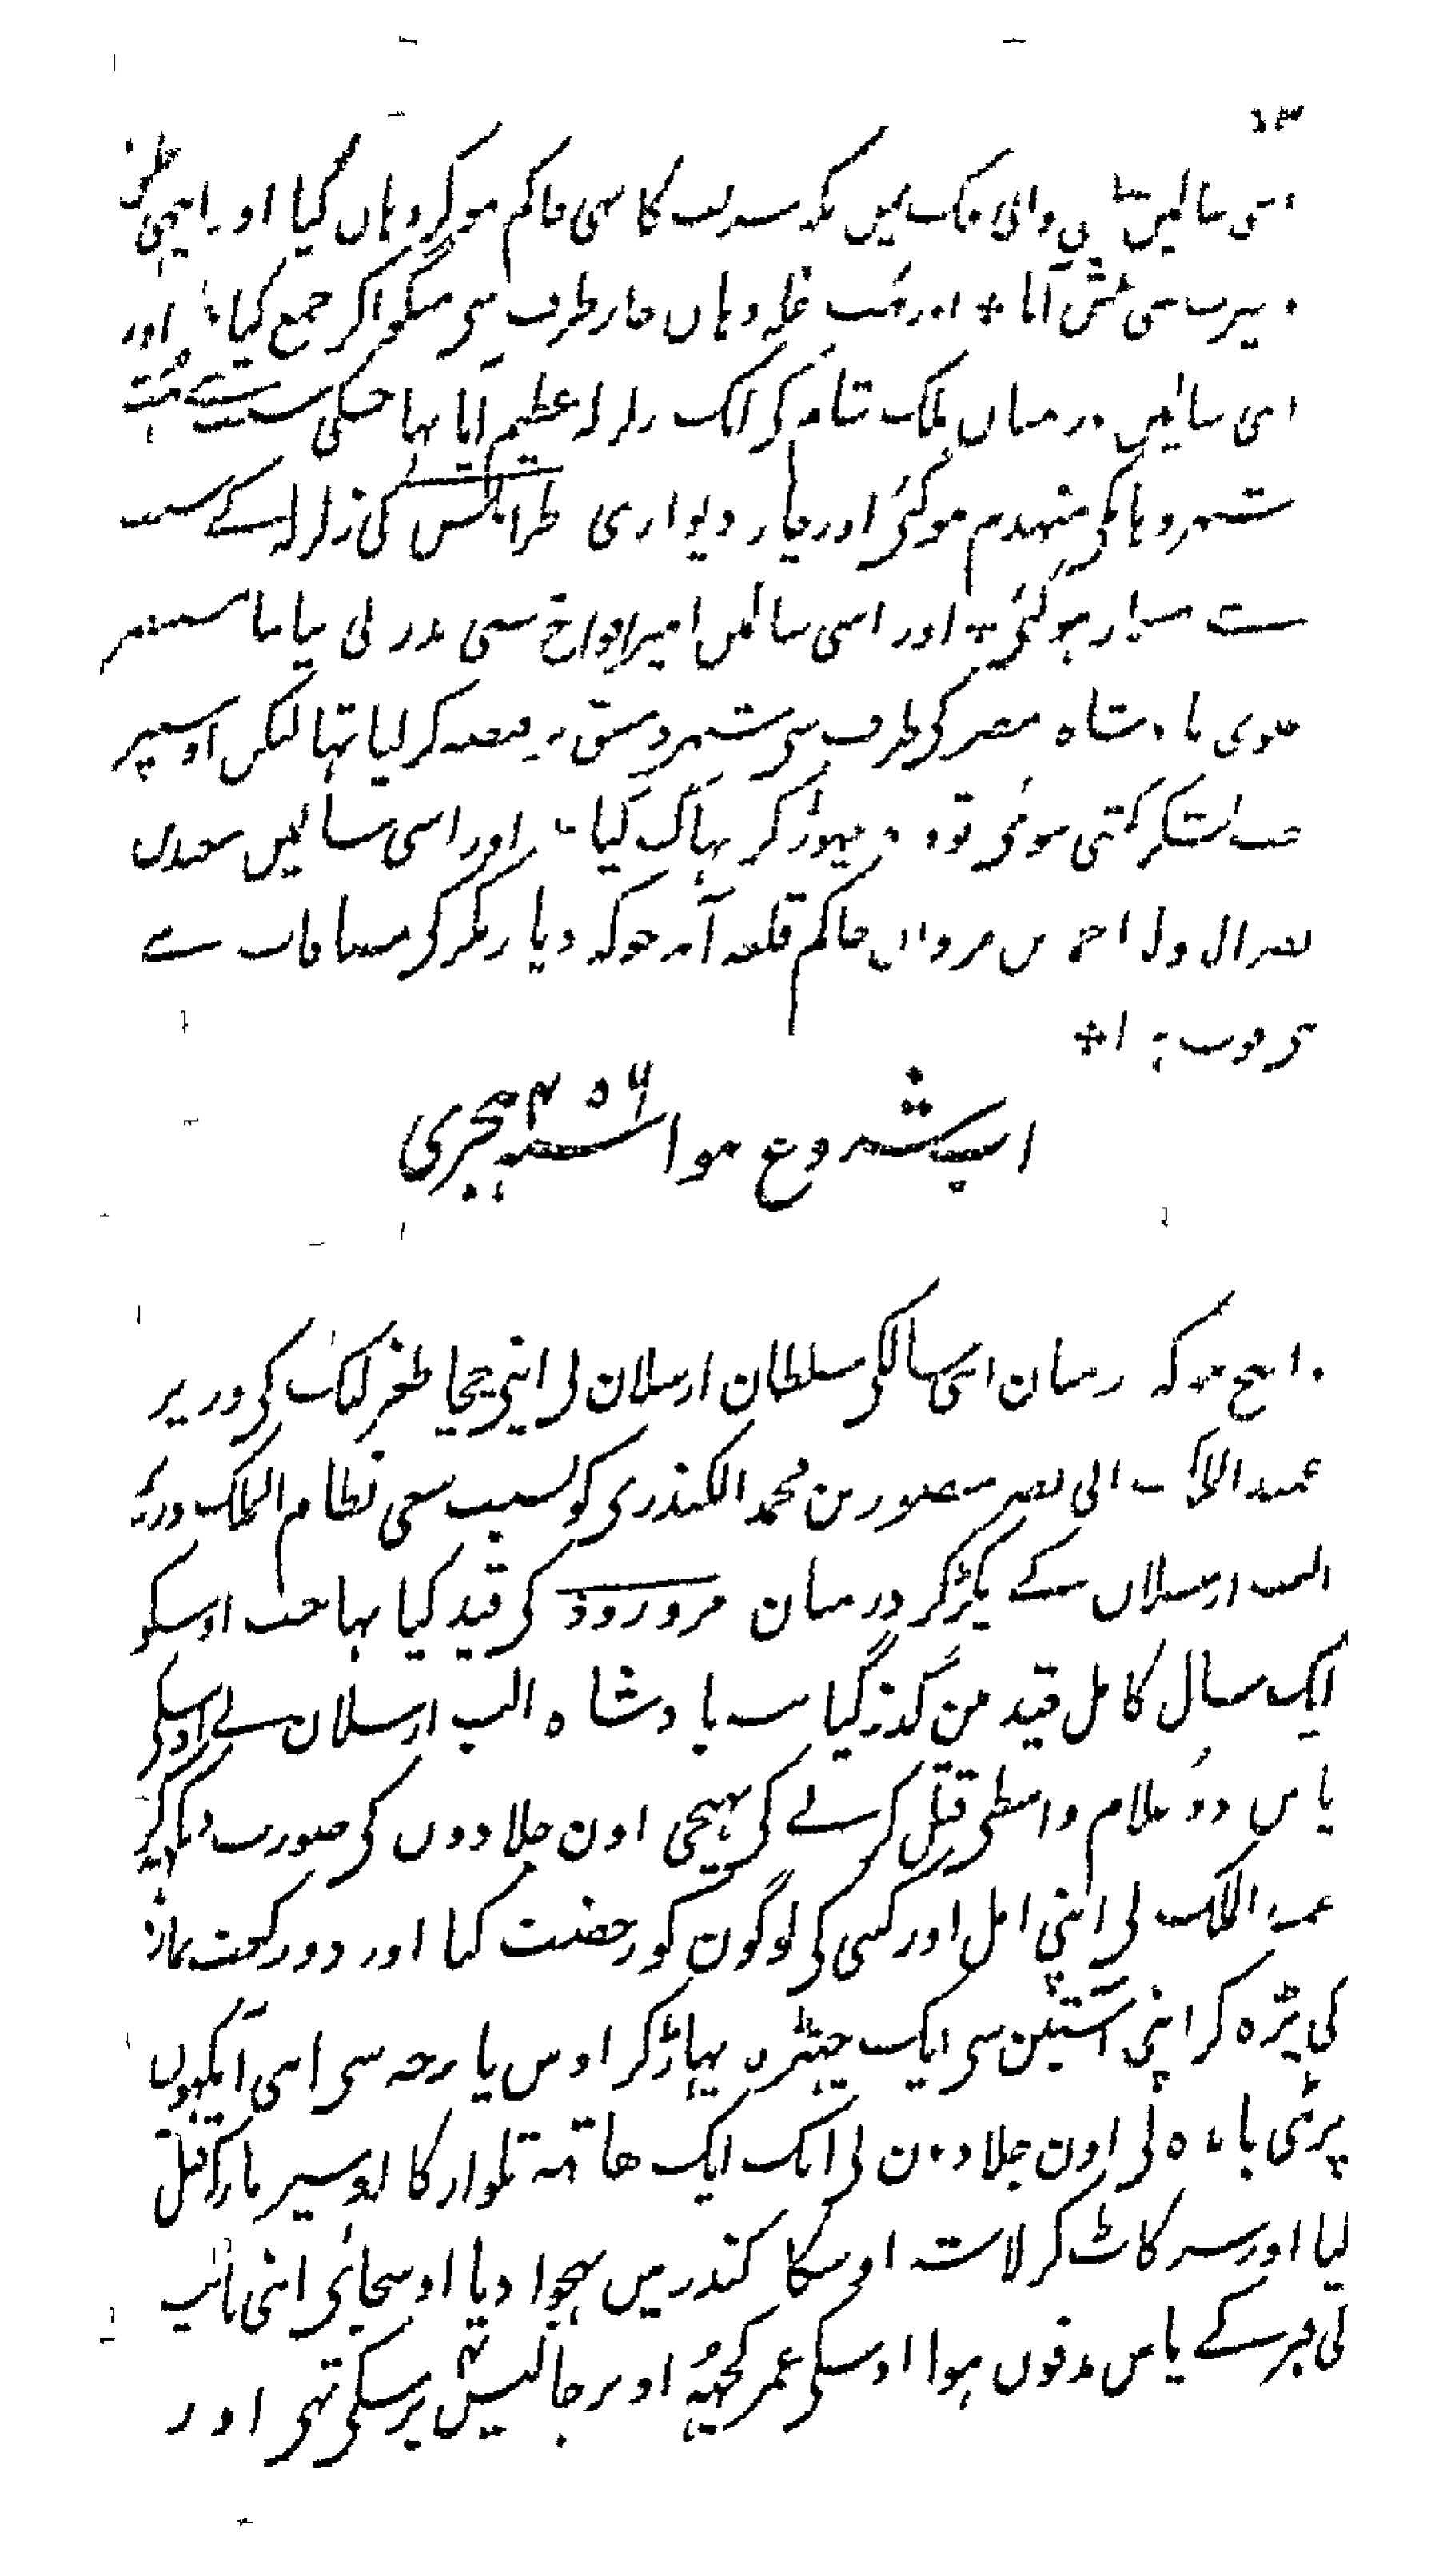 اسی سالمیں والی ملک یمن مکہ کا بھی حاکم ہوکر وہاں گیا اور اچھی
سی پیش آیا ٭ اور غلہ وہاں چار طرف سی منگواکر جمع کیا اور
اسی سالمیں درمیان ملک شام کی ایک زلزلہ عظیم آیا تہا جسکی سبب سے بہت
شہر وہانکی منہدم ہوگئی اور چار دیواری طرابلس کی زلزلہ کے سبب
سے مسمار ہوگئی اور اسی سالمیں امیر افواج مسمی بدر نی
علوی بادشاہ مصر کی طرف سی شہر دمشق پر قبضہ کر لیا تہا لیکن اوسپر
جب لشکر کشی ہوئی تو وہ چہوڑ کر بہاگ گیا اور اسی سالمیں
نصر الدولہ احمد بن مروان حاکم قلعہ آمد جو کہ دیار بکر کی مضافات سے
ہی فوت ہوا ٭
اب شروع ہوا سنہ ۴۵۶ ہجری
واضح ہو کہ درمیان اسی سالکی سلطان ارسلان نی اپنی چچا طغرلبک کی وزیر
عمید الملک ابی نصر منصور بن محمد الکندری کو بسبب سعی نظام الملک وزیر
الب ارسلان کے پکڑکر درمیان مروروذ کی قید کیا تہا جب اوسکو
ایک سال کامل قید مین گذر گیا تب بادشاہ الب ارسلان نے اوسکی
پاس دو غلام واسطی قتل کرنے کی بہیجی اون جلادوں کی صورت دیکہکر
عمید الملک نی اپنی اہل اور کی لوگون کو رخصت کیا اور دو رکعت نماز
کی پڑہ کر اپنی آستین سی ایک چیتھڑہ پہاڑکر اوس پارچہ سی اپنی آنکہوں
پر پٹی باندہ لی اون جلادون نی ایک ایک ہاتہ تلوار کا اوسپر مارکر قتل
کیا اور سر کاٹ کر لاشہ اوسکا کندر میں بہجوا دیا اوسجائی اپنی باپ
کی قبر کے پاس مدفون ہوا اوسکی عمر کچھہ اوپر چالیس برسکی تہی اور